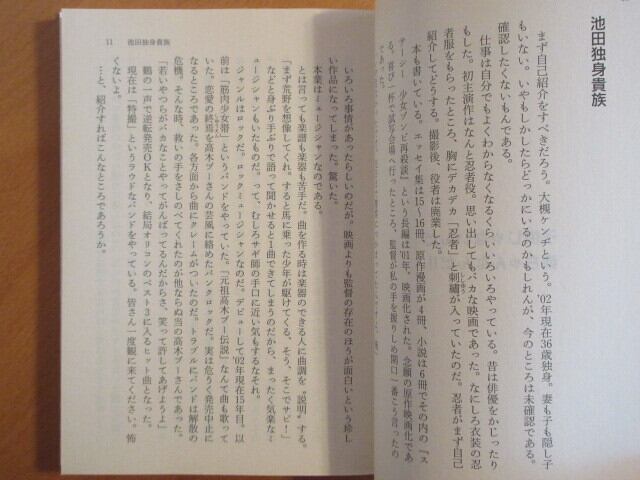 池田独身貴族
まず自己紹介をすべきだろう。大槻ケンヂという。'02年現在36歳独身。妻も子も隠し子
もいない。いやもしかしたらどっかにいるのかもしれんが、今のところは未確認である。
確認したくないもんである。
仕事は自分でもよくわからなくなるくらいいろいろやっている。昔は俳優をかじったり
もした。初主演作はなんと忍者役。思い出してもバカな映画であった。なにしろ衣装の忍
者服をもらったところ、胸にデカデカ「忍者」と刺繍が入っていたのだ。忍者がまず自己
紹介してどうする。撮影後、役者は廃業した。
本も書いている。エッセイ集は15〜16冊、原作漫画が4冊、小説は6冊でその内の『ス
テーシー 少女ゾンビ再殺談』という長編は'01年、映画化された。念願の原作映画化であ
る。喜び一杯で試写会場へ行ったところ、監督が私の手を握りしめ開口一番こう言ったの
であった。
11 池田独身貴族
いろいろ事情があったらしいのだが、映画よりも監督の存在のほうが面白いという珍し
い作品になってしまった。驚いた。
本業はミュージシャンなのである。
とは言っても楽譜も楽器も苦手だ。曲を作る時は楽器のできる人に曲調を〝説明〟する。
「まず荒野を想像してくれ。すると馬に乗った少年が駆けてくる、そう、そこでサビ！」
などと身ぶり手ぶりで語って聞かせると1曲できてしまうのだから、まったく気楽なミ
ュージシャンもいたものだ。って、むしろサギ師の手口に近い気もするなそれ。
ジャンルはロックだ。ロックミュージシャンなのだ。デビューして'02年現在15年目。以
前は「筋肉少女帯」というバンドをやっていた。「元祖高木ブー伝説」なんて曲も歌って
いた。恋愛の終焉を高木ブーさんの芸風に絡めたパンクロックだ。実は危うく発売中止に
なるところであった。各方面から曲にクレームがついたのだ。トラブルにバンドは解散の
危機。そんな時、救いの手をさしのべてくれたのが他ならぬ当の高木ブーさんであった。
「若いやつらがバカなことやってがんばってるんだからさ、笑って許してあげようよ」
鶴の一声で逆転発売OKとなり、結局オリコンのベスト3に入るヒット曲となった。
現在は「特撮」というラウドなバンドをやっている。皆さん一度観に来てください。怖
くないよ。
…と、紹介すればこんなところであろうか。